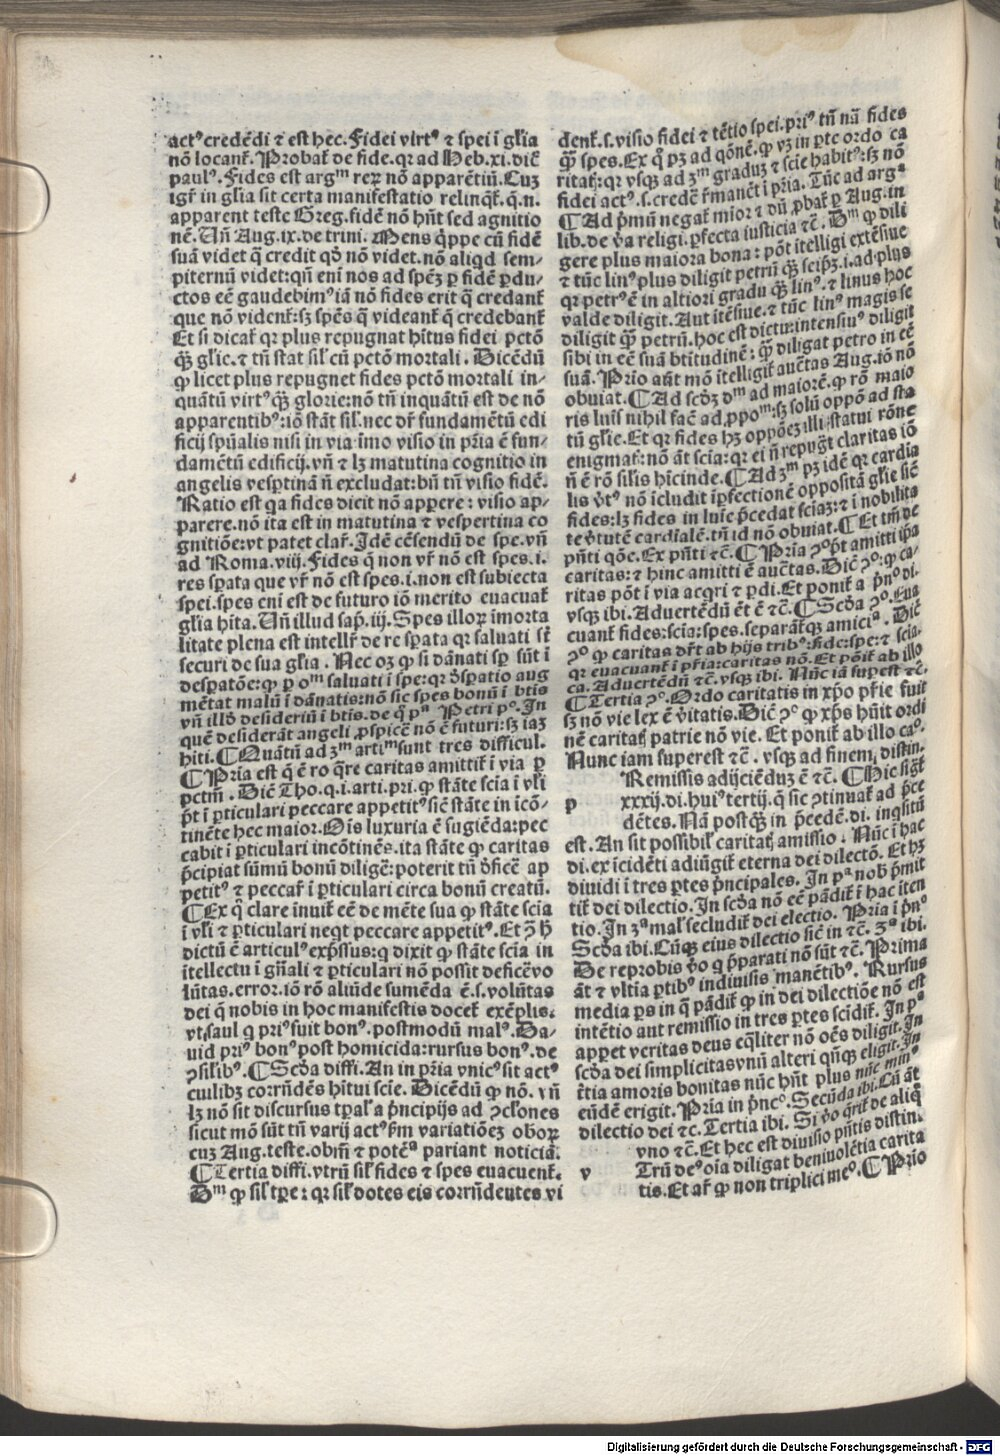 actꝰ credēdi ⁊ est hec. Fidei virtꝰ ⁊ spei ī gl̄ia
nō locant᷑. Probat᷑ de fide. qr ad Heb. xi. dic̄
paulꝰ. Fides est argᵐ reꝝ nō apparētiū. Cuꝫ
igr̄ in gl̄ia sit certa manifestatio relinqt᷑. q̄. n.
apparent teste Greg. fidē nō hn̄t sed agnitio
nē. Un̄ Aug. ix. de trini. Mens q̄ppe cū fidē
suā videt q̄ credit qđ nō videt. nō aliqđ sem-
piternū videt: qn̄ eni nos ad spēꝫ ꝑ fidē ꝑdu-
ctos eē gaudebimꝰ iā nō fides erit q̄ credant᷑
que nō vident᷑: sꝫ spēs q̄ videant᷑ q̄ credebant᷑
Et si dicat᷑ qr plus repugnat hītus fidei pctō
q̄ꝫ gl̄ie. ⁊ tn̄ stat sil̄ cū pctō mortali. Dicēdū
ꝙ licet plus repugnet fides pctō mortali in-
quātū virtꝰ q̄ꝫ glorie: nō tn̄ inquātū est de nō
apparentibꝰ: iō stāt sil̄. nec dr̄ fundamētū edi
ficij spūalis nisi in via imo visio in pr̄ia ē fun-
damētū edificij. vn̄ ⁊ lꝫ matutina cognitio in
angelis vesptinā n̄ excludat: bn̄ tn̄ visio fidē.
Ratio est qa fides dicit nō appere: visio ap-
parere. nō ita est in matutina ⁊ vespertina co
gnitiōe: vt patet clar᷑. Idē cēsendū de spe. vn̄
ad Roma. viij. Fides q̄ non vr̄ nō est spes. i.
res sperata que vr̄ nō est spes. i. non est subiecta
spei. spes eni est de futuro iō merito euacuat᷑
gl̄ia hita. Un̄ illud sap̄. iij. Spes illoꝝ īmorta
litate plena est intellr̄ de re sp̄ata qr saluati st̄
securi de sua gl̄ia. Nec oꝫ ꝙ si dānati sp̄ sūt ī
despatōe: ꝙ ꝑ oᵐ saluati ī spe: qr dspatio aug
mētat malū ī dānatis: nō sic spes bonū ī btis
vn̄ illđ desideriū ī btis. de q̄ pᵃ Petri pᵒ. In
quē desiderāt angeli ꝓspicē nō ē futuri: sꝫ iaꝫ
hiti. ¶ Quātū ad 3ᵐ artiᵐ sunt tres difficul.
¶ Pria est q̄ ē ro q̄re caritas amittit᷑ ī via ꝑ
pctm̄. Dic̄ Tho. q. i. arti. pri. ꝙ stāte scia ī vl̄i
pōt ī ꝑticulari peccare appetitꝰ sic̄ stāte in icō-
tinēte hec maior. Ois luxuria ē fugiēda: pec
cabit ī ꝑticulari incōtinēs. ita stāte ꝙ caritas
p̄cipiat sūmū bonū diligē: poterit tn̄ dficē ap
petitꝰ ⁊ peccar᷑ ī ꝑticulari circa bonū creatū.
¶ Ex q̄ clare inuit᷑ eē de mēte sua ꝙ stāte scia
ī vl̄i ⁊ ꝑticulari neqt peccare appetitꝰ. Et ꝯ h̄
dictū ē articulꝰ exp̄ssus: q dixit ꝙ stāte scia in
ītellectu ī gn̄ali ⁊ ꝑticulari nō possit deficē vo
lūtas. error. iō rō aliūde sumēda ē. s. volūtas
dei q̄ nobis in hoc manifestis docet᷑ exēplis.
vt saul q priꝰ fuit bonꝰ. postmodū malꝰ. Da-
uid priꝰ bonꝰ post homicida: rursus bonꝰ. de
ꝯsilibꝰ. ¶ Scđa diffi. An in pr̄ia vnicꝰ sit actꝰ
cuilibꝫ corrn̄dēs hītui scie. Dicēdū ꝙ nō. vn̄
lꝫ nō sit discursus tꝑal᷑ a p̄ncipijs ad ꝯcl̄ones
sicut mō sūt tn̄ varij actꝰ ẜm variatiōeꝫ oboꝝ
cuꝫ Aug. teste. obm̄ ⁊ potēᵃ pariant noticiā.
¶ Tertia diffi. vtrū sil̄ fides ⁊ spes euacuent᷑.
Dᵐ ꝙ sil̄ tꝑe: qr sil̄ dotes eis corrn̄dentes vi
dent᷑. s. visio fidei ⁊ tētio spei. priꝰ tn̄ nā fides
q̄ꝫ spes. Ex q̄ pꝫ ad qōnē. ꝙ vꝫ in ꝑte ordo ca
ritat᷑: qr vsqꝫ ad 3ᵐ graduꝫ ⁊ scie habitꝰ: sꝫ nō
fidei actꝰ. s. credē r̄manēt ī pr̄ia. Tūc ad argᵃ
¶ Ad pͥmū negat᷑ mior ⁊ dū ꝓbat᷑ ꝑ Aug. in
lib. de v̄a religi. ꝑfecta iusticia ⁊c̄. Dᵐ ꝙ dili
gere plus maiora bona: pōt itelligi extēsiue
⁊ tūc linꝰ plus diligit petrū q̄ꝫ seip̄ꝫ. i. ad plus
qr petrꝰ ē in altiori gradu q̄ꝫ linꝰ. ⁊ linus hoc
valde diligit. Aut itēsiue. ⁊ tūc linꝰ magis se
diligit q̄ꝫ petrū. hoc est dictu: intensiuꝰ diligit
sibi in eē suā btitudinē: q̄ꝫ diligat petro in eē
suā. Prio aūt mō itelligit᷑ auctas Aug. iō nō
obuiat. ¶ Ad scđꝫ dᵐ ad maiorē. ꝙ rō maio
ris luis nihil facē ad ꝓpoᵐ: sꝫ solū oppō ad sta
tū gl̄ie. Et qr fides hꝫ oppōeꝫ illi statui rōne
enigmat᷑: nō āt scia: qr ei n̄ repugt claritas iō
n̄ ē rō sil̄is hicinde. ¶ Ad 3ᵐ pꝫ idē qr cardia
lis v̄tꝰ nō icludit īꝑfectionē oppositā gl̄ie sic̄
fides: lꝫ fides in luīe p̄cedat sciaꝫ: ⁊ ī nobilita
te v̄tutē cardīalē. tn̄ id nō obuiat. ¶ Et tm̄ de
pn̄ti qōe. Ex pn̄ti ⁊c̄. ¶ Pria ꝯᵒ pōt amitti ip̄a
caritas: ⁊ hinc amitti ē auctas. Dic̄ ꝯᵒ: ꝙ ca-
ritas pōt ī via acqri ⁊ ꝑdi. Et ponit᷑ a p̄nᵒ di.
vsqꝫ ibi. Aduertēdū ēt ē ⁊c̄. ¶ Scđa ꝯᵒ. Eua
cuant᷑ fides: scia: spes. separat᷑qꝫ amiciᵃ. Dic̄
ꝯᵒ ꝙ caritas drt ab hijs tribꝰ: fide: spe: ⁊ scia.
qr euacuant᷑ ī pr̄ia: caritas nō. Et pōit᷑ ab illo
ca. Aduertēdū ⁊c̄. vsqꝫ ibi. Nūc iā supest ⁊c̄.
¶ Tertia ꝯᵒ. Ordo caritatis in xp̄o pr̄ie fuit
sꝫ nō vie lex ē v̄itatis. Dic̄ ꝯᵒ ꝙ xp̄s hūit ordi
nē caritat᷑ patrie nō vie. Et ponit᷑ ab illo caᵒ.
Nunc iam superest ⁊c̄. vsqꝫ ad finem distin.
Remissis adijciēduꝫ ē ⁊c̄. ¶ Hic sig᷑t
p xxxij. di. huiꝰ tertij. q̄ sic ꝯtinuat᷑ ad p̄ce
dētes. Nā postq̄ꝫ in p̄cedē. di. inqsitū
est. An sit possibil᷑ caritat᷑ amissio. Nūc ī hac
di. ex icidēti adiūgit᷑ eterna dei dilectō. Et hꝫ
diuidi ī tres ꝑtes p̄ncipales. In pᵃ nob̄ p̄mit
tit᷑ dei dilectio. In scđa nō eē pādit᷑ ī hac itēn
tio. In 3ᵃ mal᷑ secludit᷑ dei electio. Pria ī p̄nᵒ
Scđa ibi. Cūqꝫ eius dilectio sic̄ in ⁊c̄. 3ᵃ ibi.
De reprobis v̄o q p̄parati nō sūt ⁊c̄. Prima
āt ⁊ vltia ꝑtibꝰ indiuisis manētibꝰ. Rursus
media ꝑs in q̄ pādit᷑ ꝙ in dei dilectiōe nō est
intētio aut remissio in tres ꝑtes scīdit᷑. In pᵃ
apꝑet veritas deus eq̄liter nō oēs diligit. In
scđa dei simplicitas vnū alteri qn̄qꝫ eligit. In
t̄tia amoris bonitas nūc hn̄t plus nūc minꝰ
eūdē erigit. Pria in p̄ncᵒ. Secūda ibi. Cū āt
dilectio dei ⁊c. Tertia ibi. Si v̄o q̄rit᷑ de aliq̄
vno ⁊c̄. Et hec est diuisio pn̄tis distin.
v Trū deꝰ oīa diligat beniuolētia carita
tis. Et ar᷑ ꝙ non triplici meᵒ. ¶ Prio
Digitalisierung gefördert durch die Deutsche Forschungsgemeinschaft - DFG